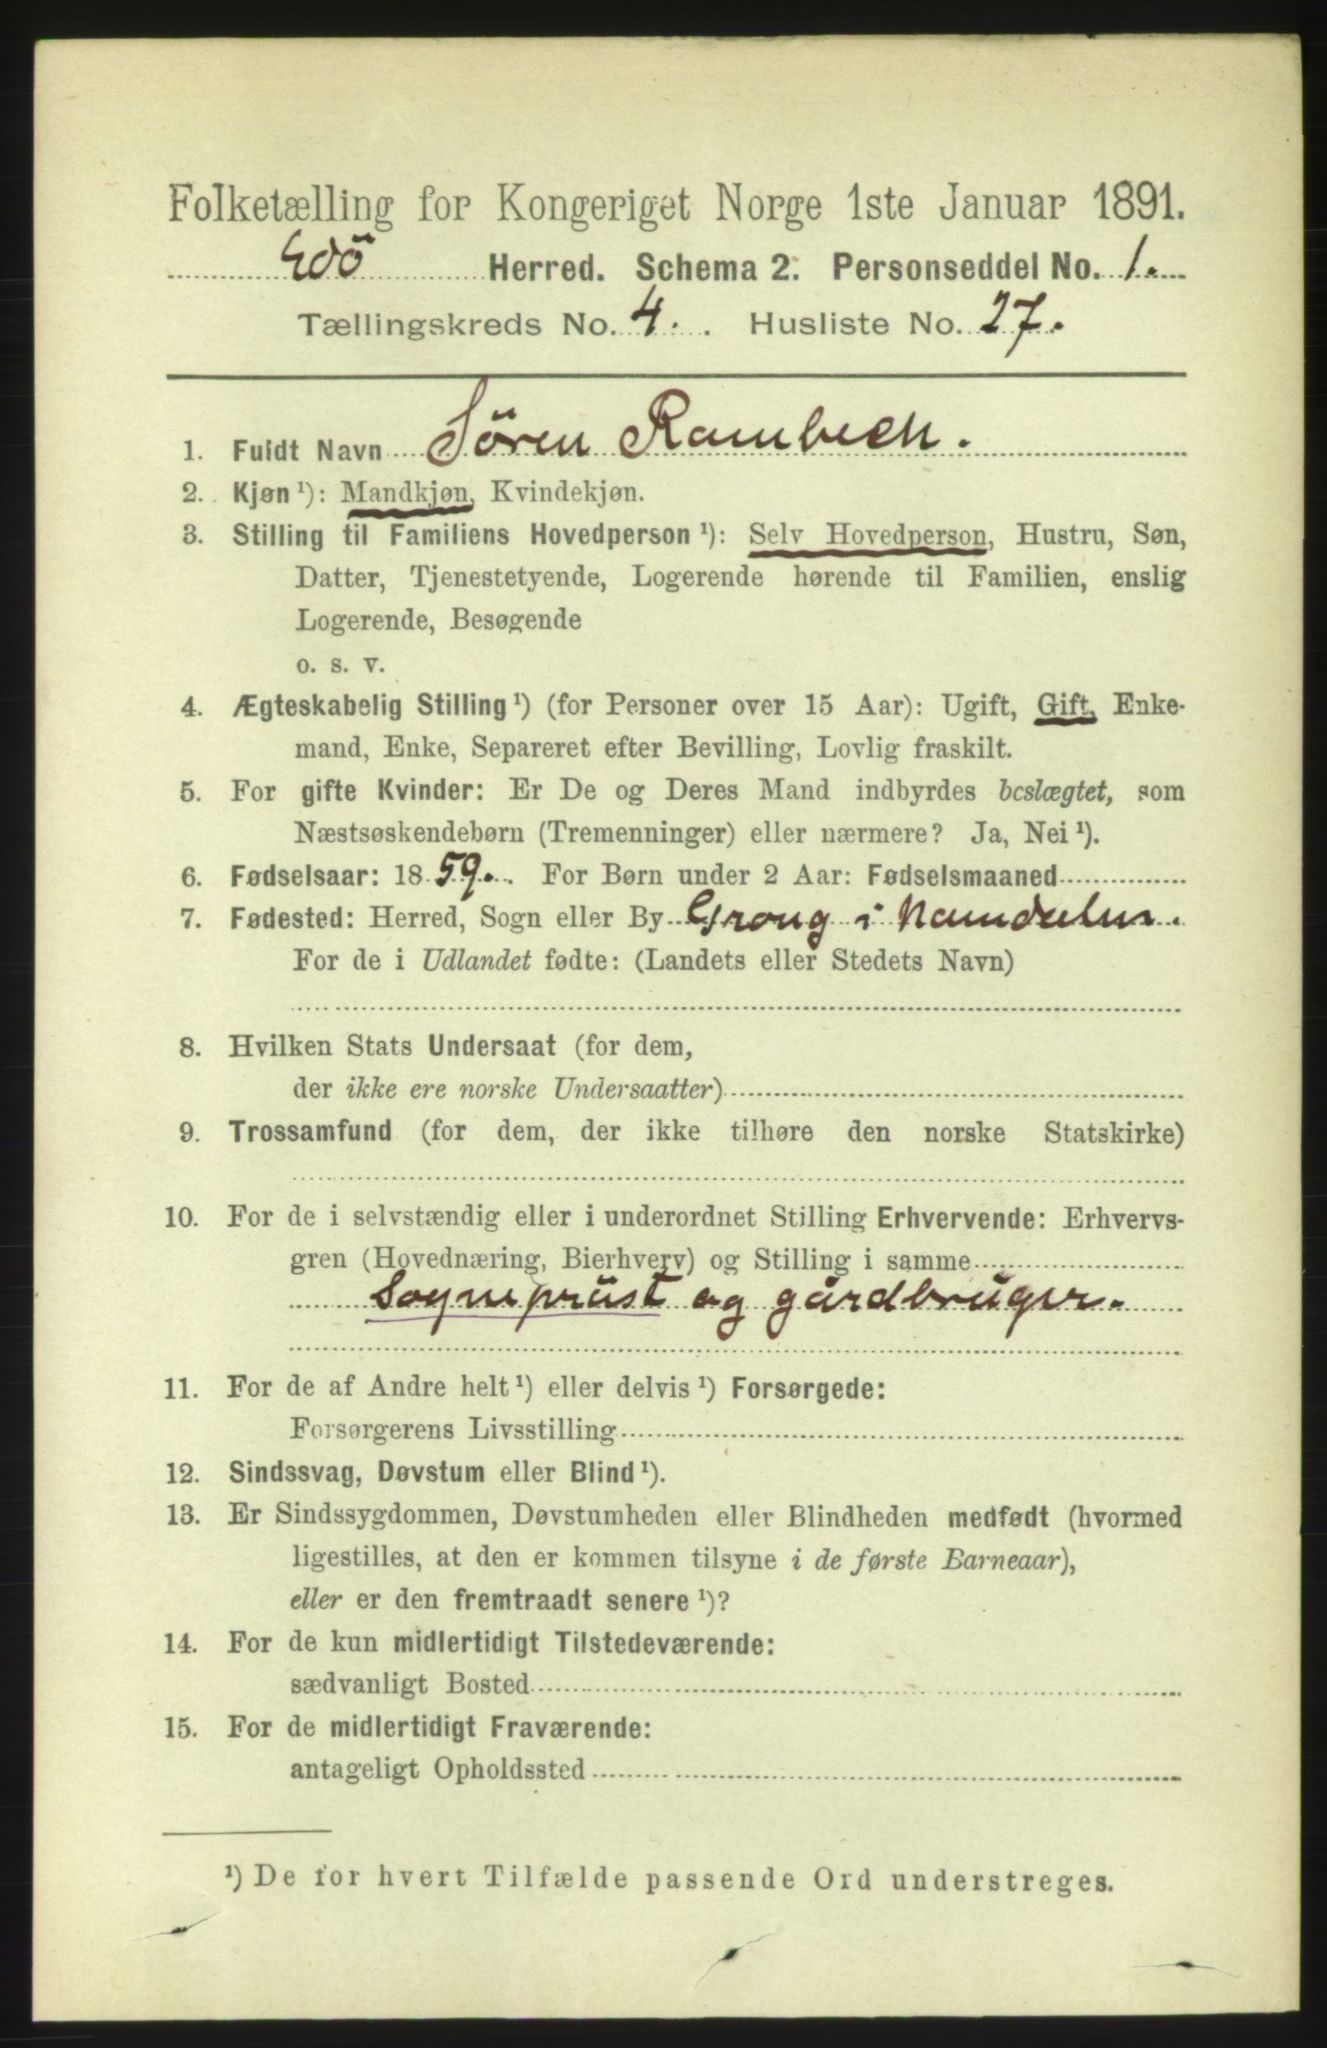 Folketælling for Kongeriget Norge 1ste Januar 1891.
Edö Herred. Schema 2. Personseddel No. 1.
Tællingskreds No. 4. Husliste No. 27.
1. Fuldt Navn Sören Rambech.
2. Kjøn ¹): Mandkjøn, Kvindekjøn.
3. Stilling til Familiens Hovedperson ¹): Selv Hovedperson, Hustru, Søn,
Datter, Tjenestetyende, Logerende hørende til Familien, enslig
Logerende, Besøgende
o. s. v.
4. Ægteskabelig Stilling ¹) (for Personer over 15 Aar): Ugift, Gift, Enke-
mand, Enke, Separeret efter Bevilling, Lovlig fraskilt.
5. For gifte Kvinder: Er De og Deres Mand indbyrdes beslægtet, som
Næstsøskendebørn (Tremenninger) eller nærmere? Ja, Nei ¹).
6. Fødselsaar: 18 59. For Børn under 2 Aar: Fødselsmaaned
7. Fødested: Herred, Sogn eller By Grong i Namdalen.
For de i Udlandet fødte: (Landets eller Stedets Navn)
8. Hvilken Stats Undersaat (for dem,
der ikke ere norske Undersaatter)
9. Trossamfund (for dem, der ikke tilhøre den norske Statskirke)
10. For de i selvstændig eller i underordnet Stilling Erhvervende: Erhvervs-
gren (Hovednæring, Bierhverv) og Stilling i samme
Sogneprest og gårdbruger.
11. For de af Andre helt ¹) eller delvis ¹) Forsørgede:
Forsørgerens Livsstilling
12. Sindssvag, Døvstum eller Blind ¹).
13. Er Sindssygdommen, Døvstumheden eller Blindheden medfødt (hvormed
ligestilles, at den er kommen tilsyne i de første Barneaar),
eller er den fremtraadt senere ¹)?
14. For de kun midlertidigt Tilstedeværende:
sædvanligt Bosted
15. For de midlertidigt Fraværende:
antageligt Opholdssted
¹) De for hvert Tilfælde passende Ord understreges.